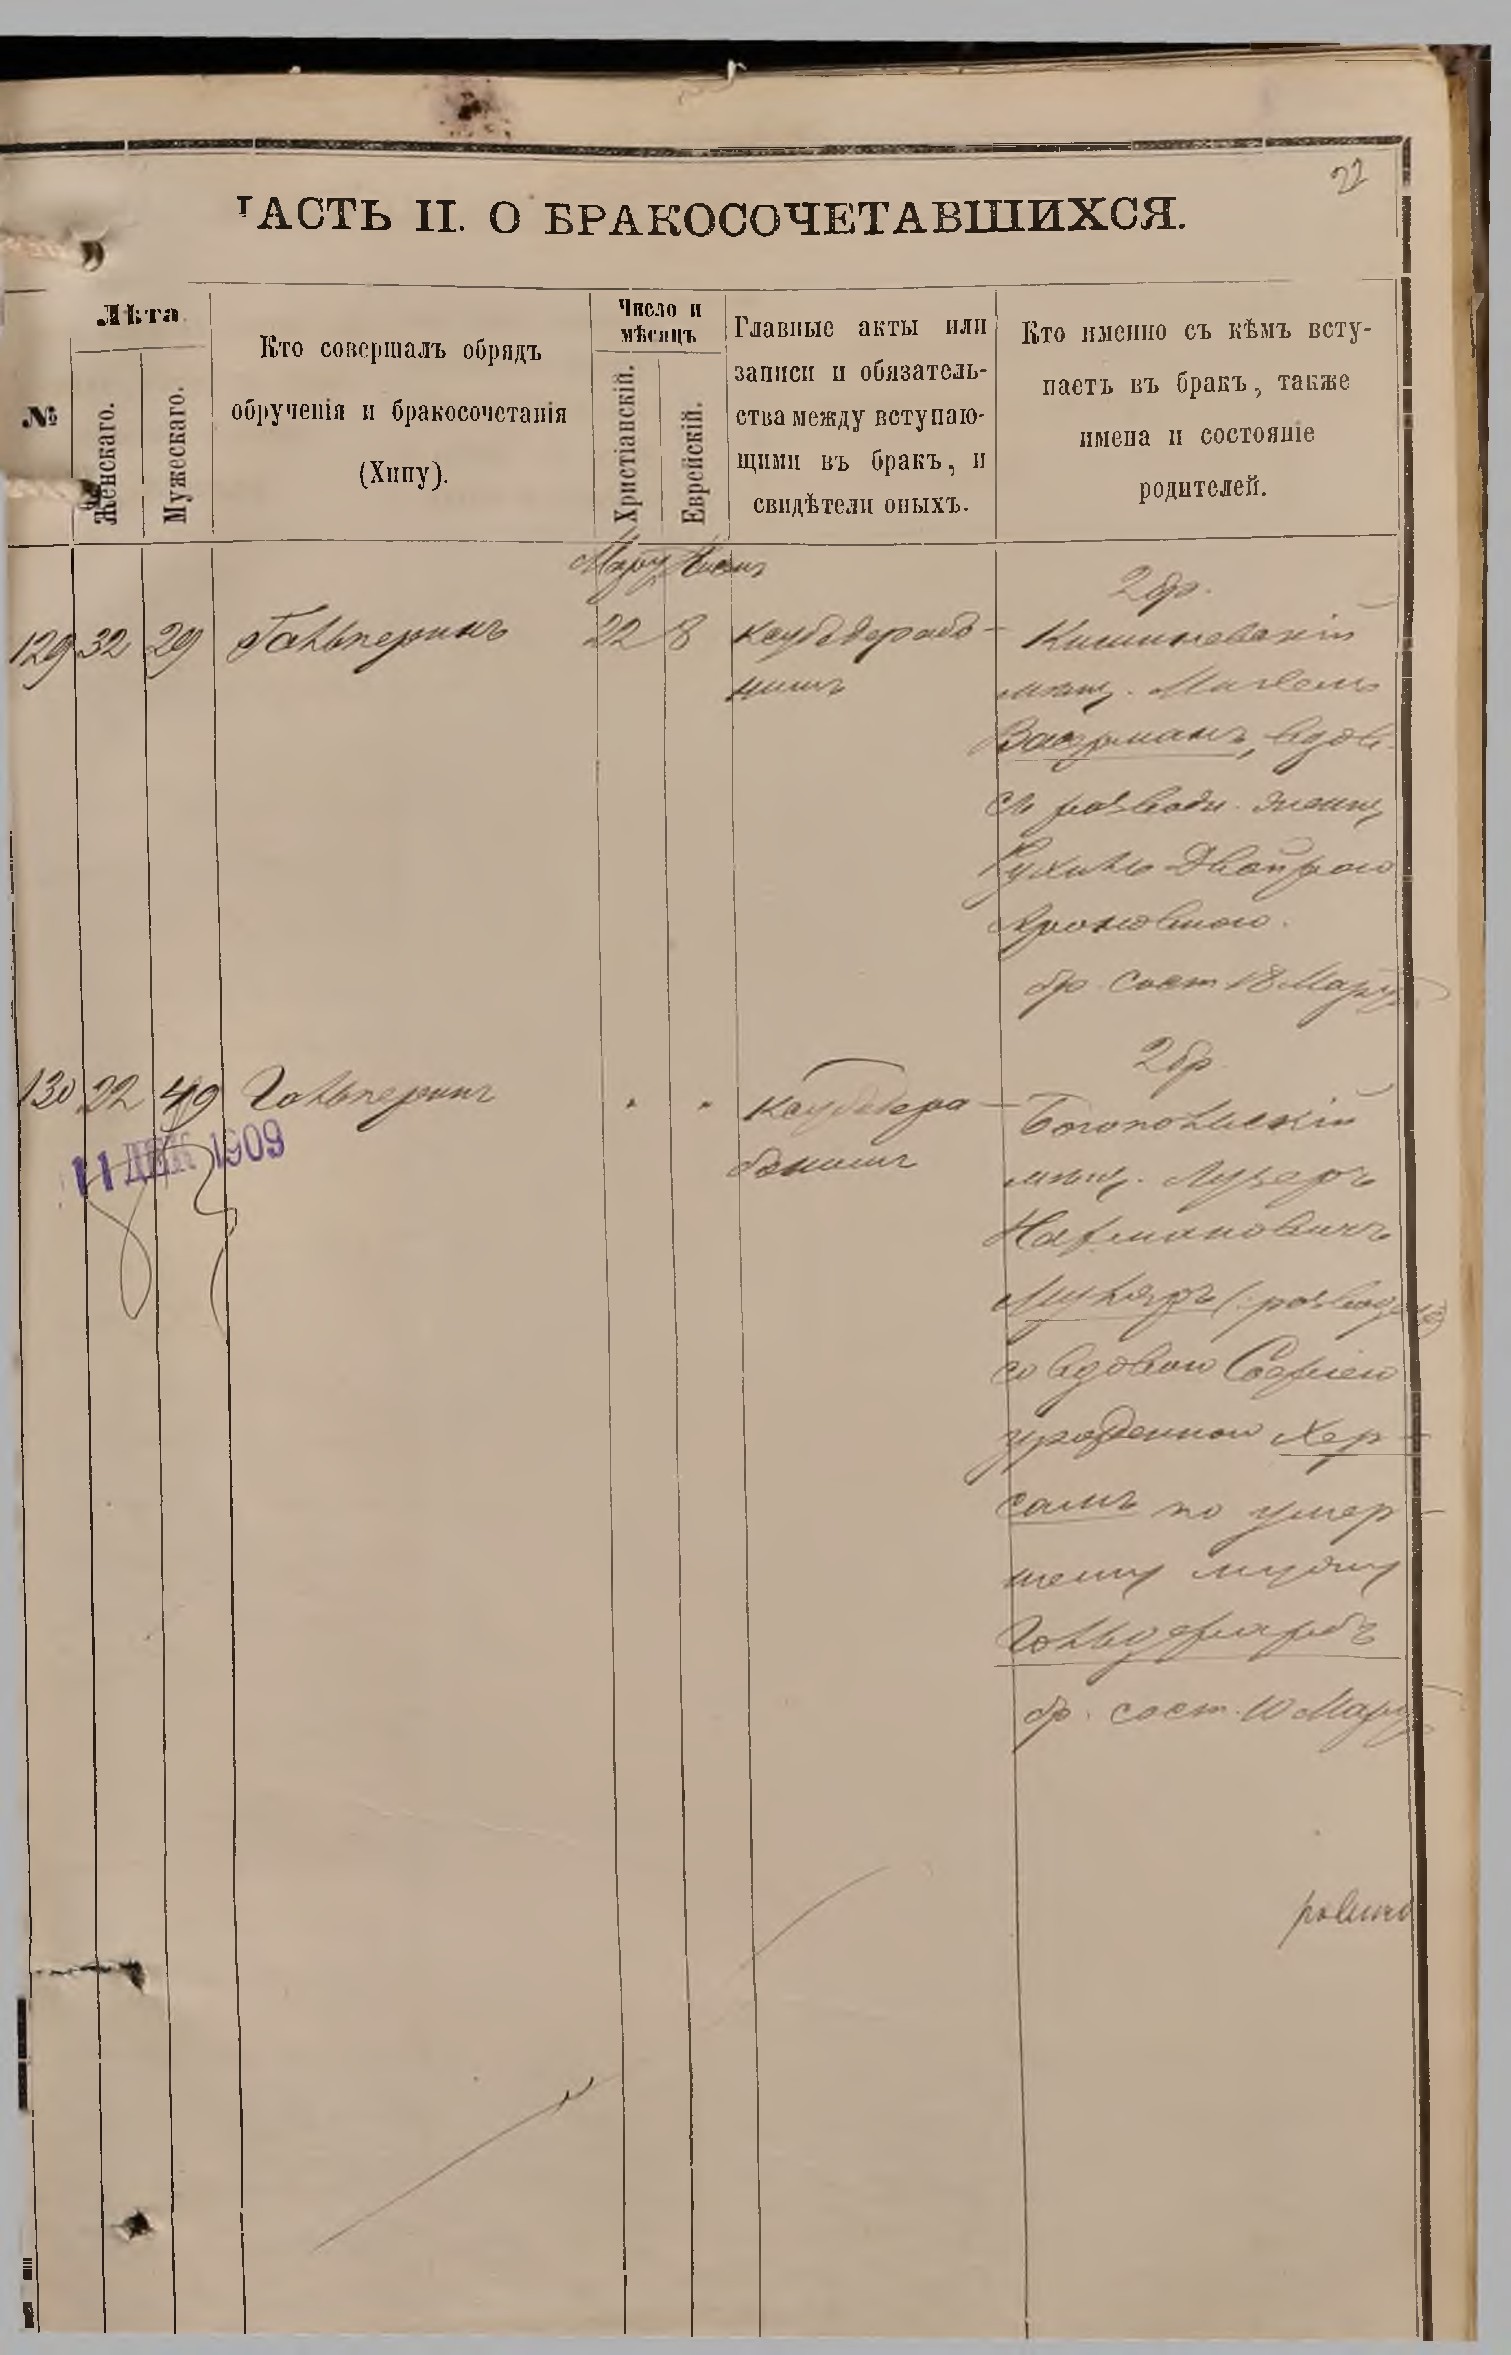 22
ЧАСТЬ II. О БРАКОСОЧЕТАВШИХСЯ.
№
Лѣта
Женскаго.
Мужескаго.
Кто совершалъ обрядъ
обрученія и бракосочетанія
(Хипу).
Число и
мѣсяцъ
Христіанскій.
Еврейскій.
Главные акты или
записи и обязатель-
ства между вступаю-
щими въ бракъ, и
свидѣтели оныхъ.
Кто именно съ кѣмъ всту-
паетъ въ бракъ, также
имена и состояніе
родителей.
Марта
129 32 29 Гальперинъ 22 8
2 бр.
Кишиневскій
мѣщ.
Васерманъ, вдов.
съ развод. женщ.
Рухлею Двойрою
Ароновною.
бр. сост. 18 Марта
130 22 49 Гальперинъ " "
11 ДЕК 1909
2 бр.
Богопольскій
мѣщ. Лузеръ
Нахмановичъ
со вдовою Софіею
урожденной Хер-
сомъ по умер-
шему мужу
Гольдфарбъ
бр. сост. 10 Марта